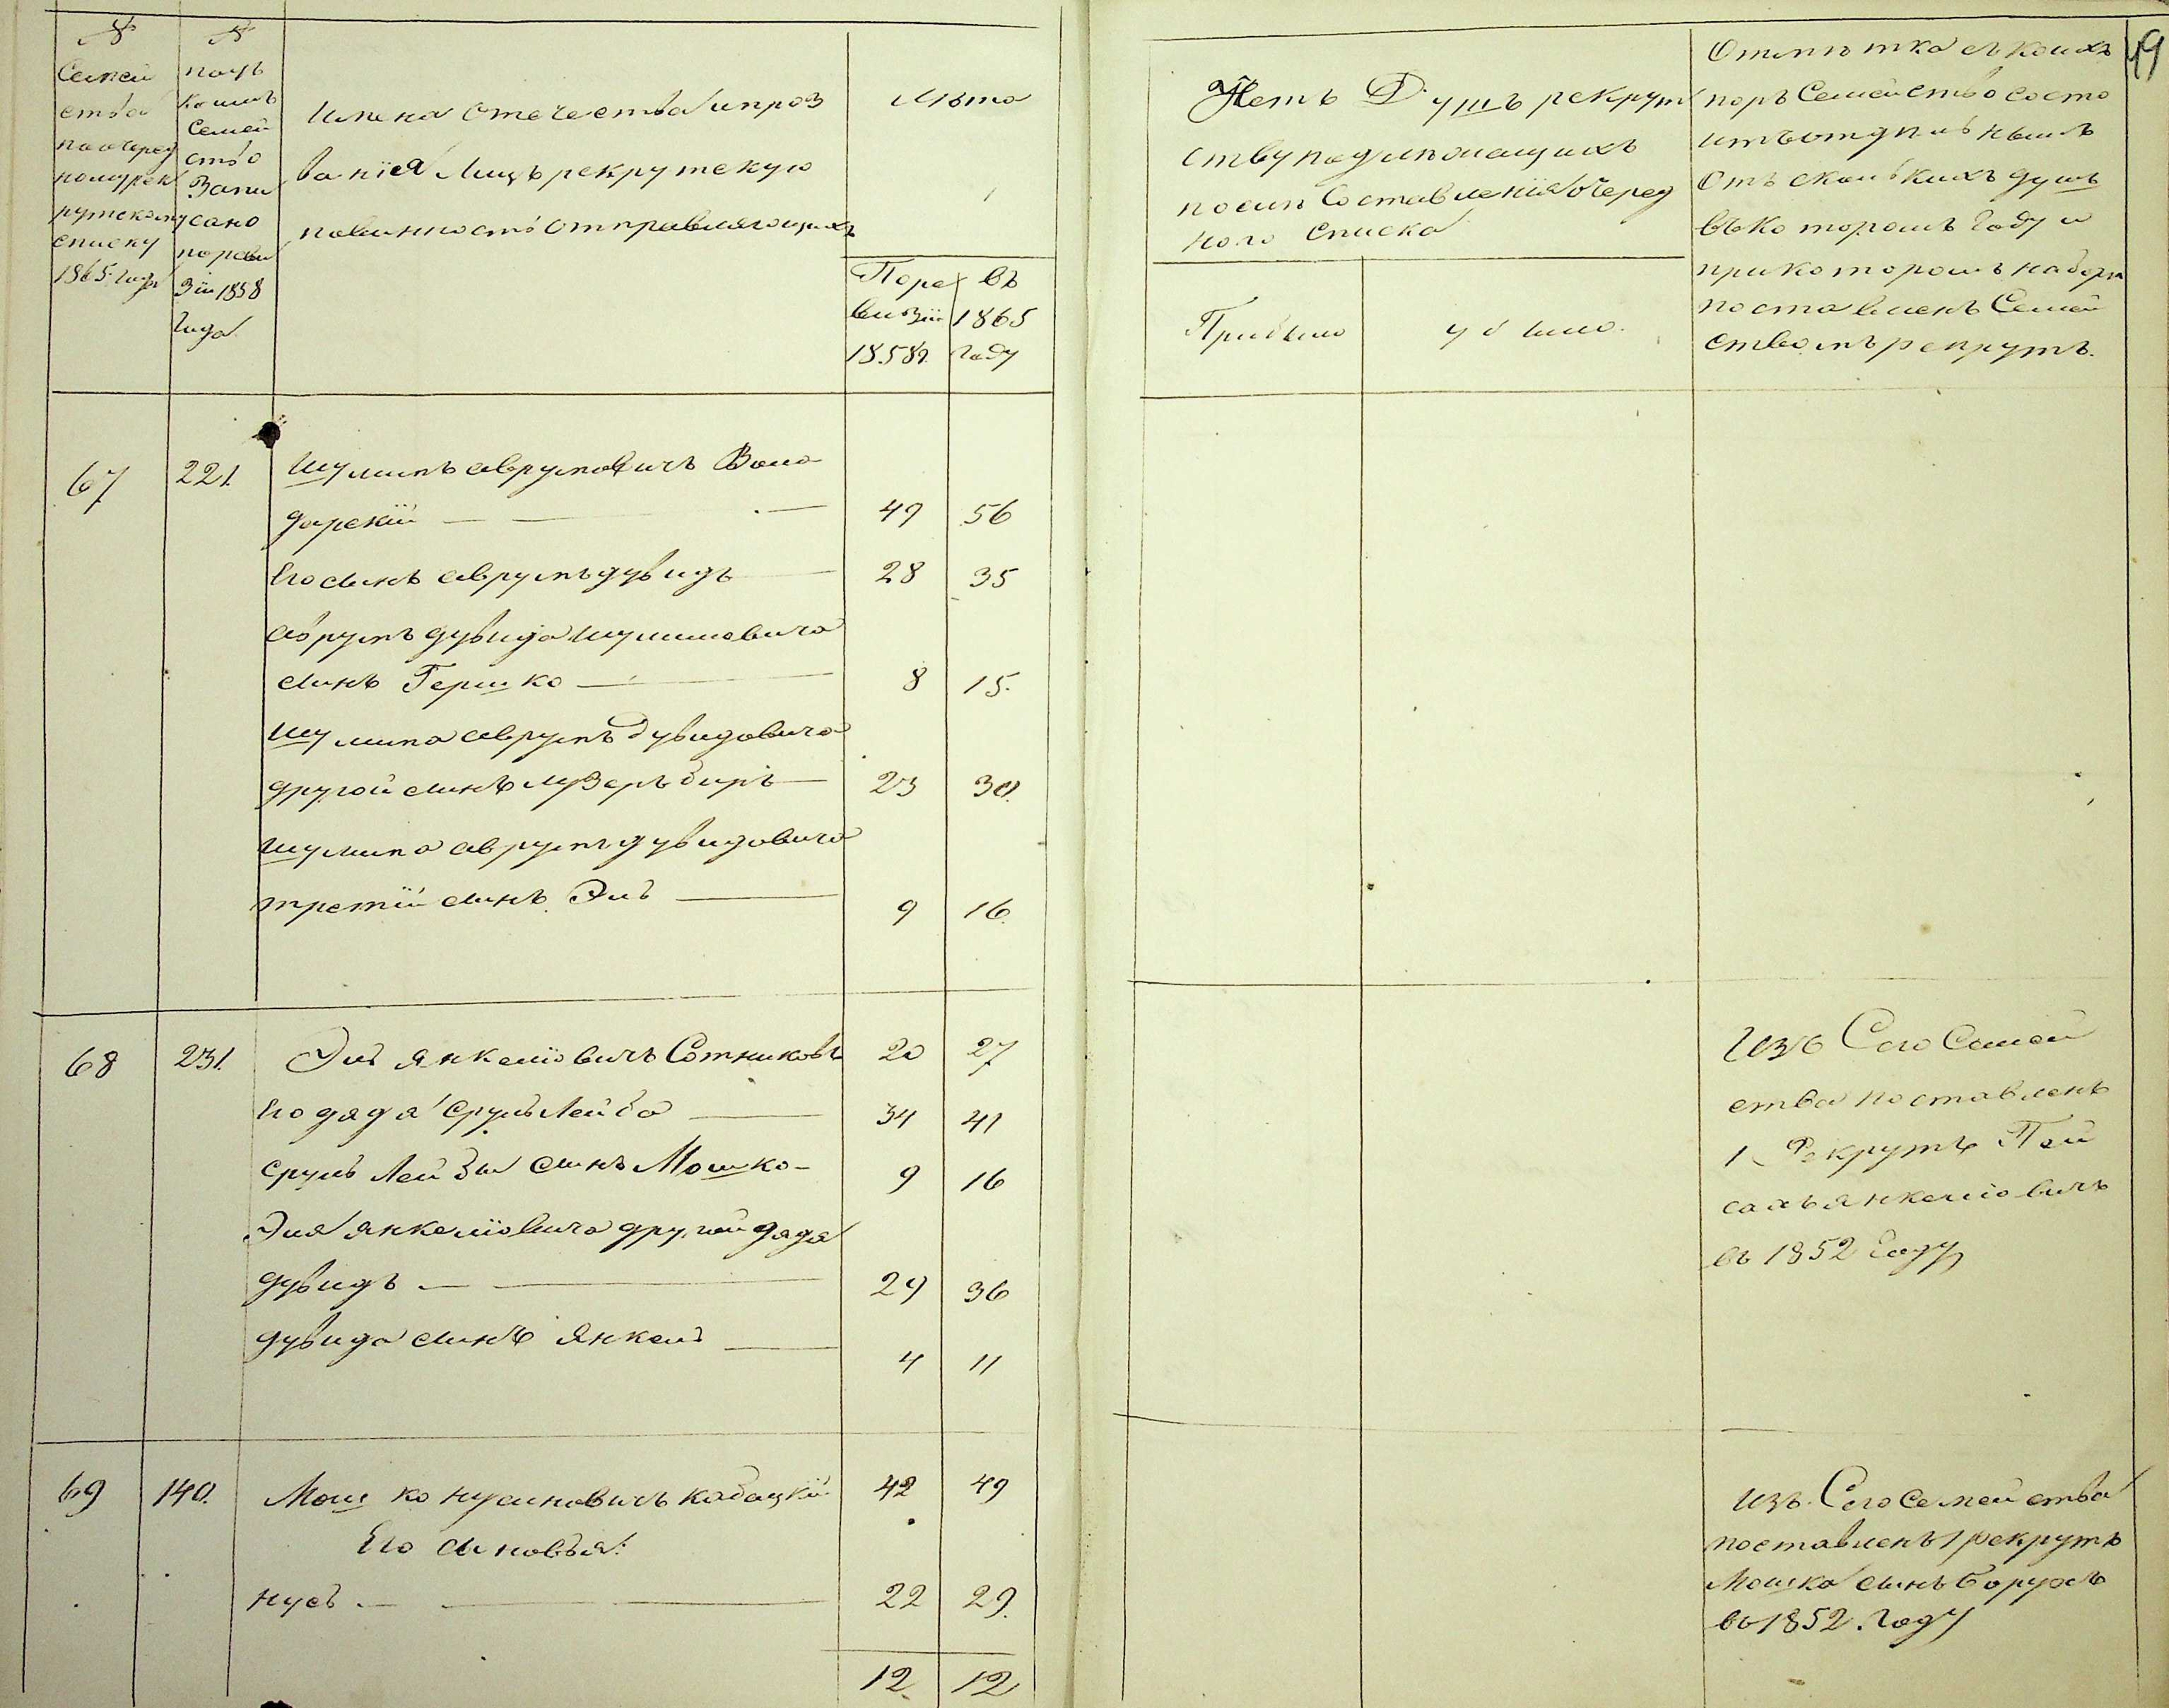 №
Семей
ства
по очеред
ному рек
рутскому
списку
1865 года
№
подъ
коимъ
Семей
ство
Запи
сано
по реви
зіи 1858
года
Имена отечества и проз
ванія лицъ рекрутскую
повинность отправляющихъ
Лѣта
По ре
визіи
1858 г.
въ
1865
году
67 221. Шулимъ Аврумовичъ Воло
дарскій — — — 49 56
Его сынъ Аврумъ Дувидъ — 28 35
Аврумъ Дувида Шулимовича
сынъ Гершко — 8 15.
Шулима Аврумъ Дувидовича
другой сынъ Лузеръ Беръ — 23 30.
Шулима Аврумъ Дувидовича
третій сынъ Эль — 9 16.
68 231. Эль Янкеліовичъ Сотниковъ 20 27
Его дядя Сруль Лейба — 34 41
Сруль Лейбы сынъ Мошко — 9 16
Эля Янкеліовича другой дядя
Дувидъ — — 29 36
Дувида сынъ Янкель — 4 11
69 140. Мошко Нусиновичъ Кабацкій 42 49
Его сыновья:
Нусъ — — — 22 29.
12 12
49
Счетъ Душъ рекрут
ству подлежащихъ
послѣ Составленія очеред
ного списка
Прибыло
убыло.
Отмѣтка съ коихъ
поръ Семейство состо
итъ отдѣльнымъ
отъ сколькихъ душъ
въ которомъ году и
при которомъ наборѣ
поставленъ Семей
ствомъ рекрутъ.
Изъ Сего Семей
ства поставленъ
1 Рекрутъ Пей
сахъ Янкеліовичъ
въ 1852 году
Изъ Сего Семейства
поставленъ 1 рекрутъ
Мошка сынъ Борухъ
въ 1852. году